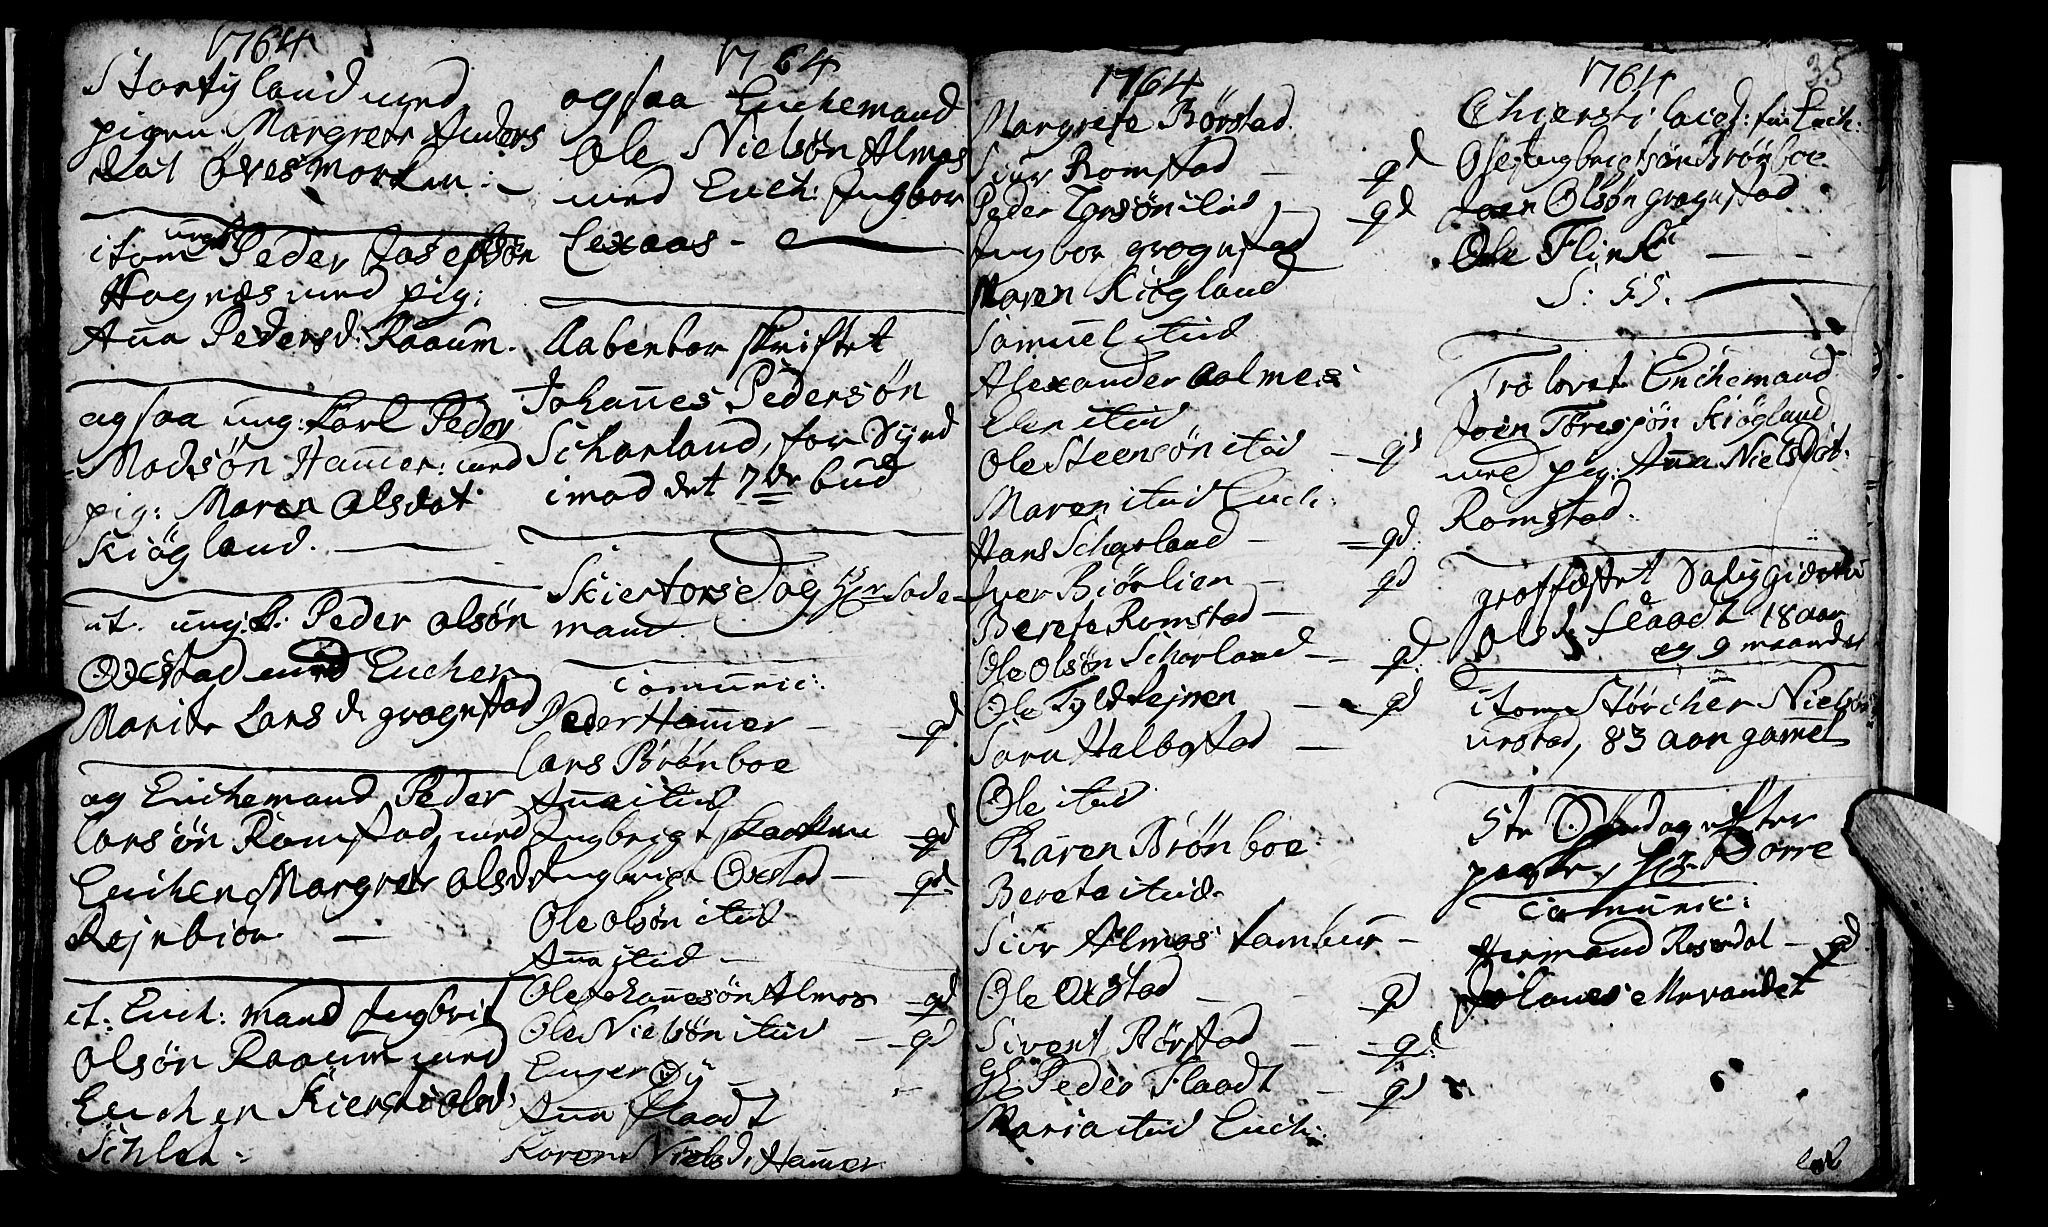 1764
Stortyland med
pigen Margrete Anders
dat Øresmorken:
item ungk Peder Josephsøn
Hagnæs med pig:
Aña Pedersd: Raaum.
ogsaa ung: karl Peder
Madsøn Hamer: med
pig: Maren Olsdat
Kiøgland.
it. ung: k: Peder Olsøn
Oxstad med Encken
Marite Lars d. grognstad
og Enchemand Peder
Larsøn Romstad, med
Encken Margrete Olsdt
Rejnbiør
it: Ench: mand Ingbrit
Olsøn Raaum med
Encken Kiersti Olsd:
1764
ogsaa Enchemand
Ole Nielsøn Almos
med Ench: Ingbor
Lexaas -
Aabenbar skriftet
Johañes Pedersøn
Scharland, for Synd
imod det 7de bud
Skiertorsdag
mand
Comunic:
Peder Hamer - gd
Lars Brønboe
Aña itid
Ingbrigt gd
Ingbrigt Oxstad - gd
Ole Olsøn itid
Aña itid -
Ole Johañesøn Almos gd
Ole Nielsøn itid - gd
Enger Øy -
Aña Flaadt
Karen Nielsd, Hamer
1764
Margrete Børstad
Siur Romstad - gd
Peder itid - gd
Ingbor grognstad
Maren Kiøgland
Samuel itid
Alexander Aalmes
Elen itid
Ole Steensøn itid - gd
Maren itid Ench:
Hans Scharland - gd:
Iver Biørlien - gd
Berete Romstad -
Ole Olsøn Scharland - gd:
Ole - gd
Sara Halbostad -
Ole itid
Karen Brønboe
Bereta itid.
Siur Almos tambur -
Ole Oxstad - gd
Sivert Børstad - gd:
Peder Flaadt - gd
Maria itid Ench:
1764 35
Ench:
Ole Ingbrigtsøn Brønboe
Joen Olsøn grognstad
Ole Flink -
S: 55.
Trolovet Enchemand
Joen Toresøn Kiøgland
med pig: Aña Nielsdat:
Romstad.
graffæstet
Ols d. Flaadt 18 aar
og 9 maaneder
item Størcher Nielsøn
Urstad, 83 aar gamel
5te Søndag efter
paaske, Hr. Dorre
Comunic:
Hermand Rosendal - gd